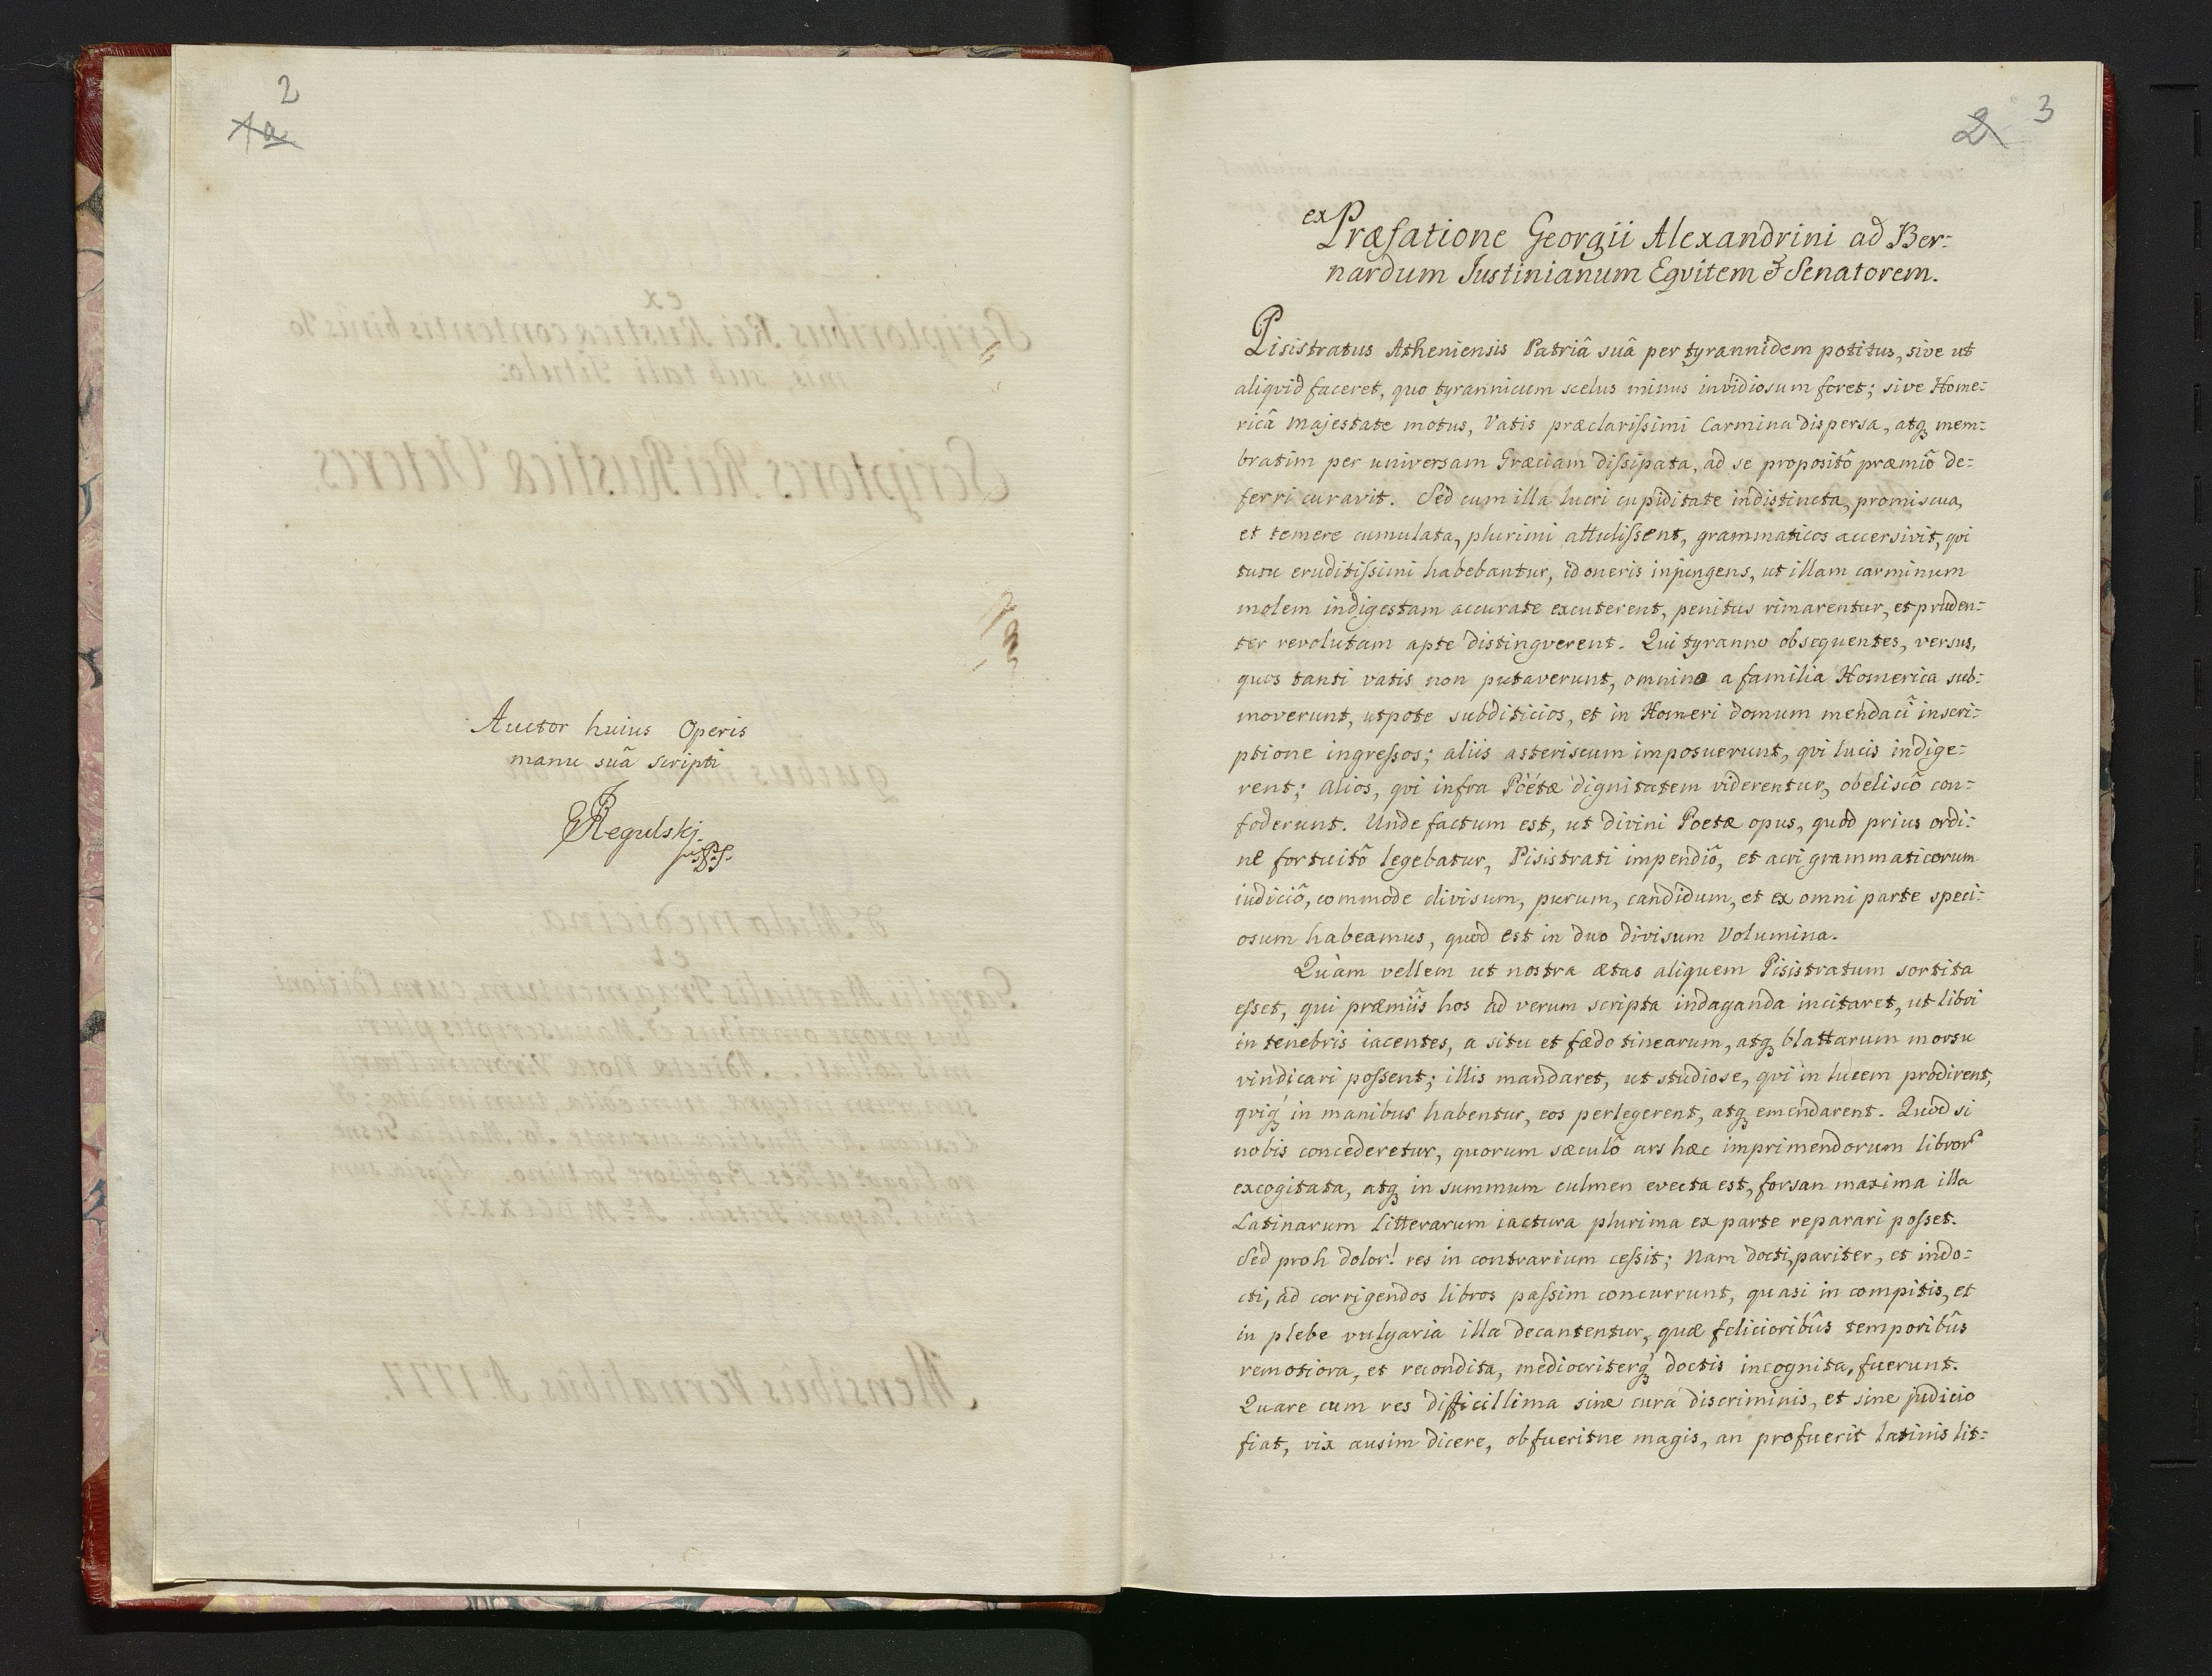 2
1a
Auctor huius Operis
manu suâ scripti
Regulskj
2 3
ex Præfatione Georgii Alexandrini ad Ber:
nardum Iustinianum Eqvitem & Senatorem.
Pisistratus Atheniensis Patriâ suâ per tyrannidem potitus, sive ut
aliqvid faceret, quo tyrannicum scelus minus invidiosum foret; sive Home:
ricâ majestate motus, Vatis præclarissimi Carmina dispersa, atq; mem:
bratim per universam Græciam dissipata, ad se propositô præmiô de:
ferri curavit. Sed cum illa lucri cupiditate indistincta, promiscua,
et temere cumulata, plurimi attulissent, grammaticos accersivit, qvi
tum eruditissimi habebantur, id oneris injungens, ut illam carminum
molem indigestam accurate excuterent, penitus rimarentur, et pruden:
ter revolutam apte distingverent. Qui tyranno obsequentes, versus,
quos tanti vatis non putaverunt, omnino a familia Homerica sub:
moverunt, utpote subditicios, et in Homeri domum mendaci inscri:
ptione ingressos; aliis asteriscum imposuerunt, qvi lucis indige:
rent; alios, qvi infra Poëtæ dignitatem viderentur, obeliscô con:
foderunt. Unde factum est, ut divini Poetæ opus, quod prius ordi:
ne fortuitô legebatur, Pisistrati impendiô, et acri grammaticorum
iudiciô, commode divisum, purum, candidum, et ex omni parte speci:
osum habeamus, quod est in duo divisum Volumina.
Quàm vellem ut nostra ætas aliquem Pisistratum sortita
esset, qui præmiis hos ad verum scripta indaganda incitaret, ut libri
in tenebris iacentes, a situ et fædo tinearum, atq; blattarum morsu
vindicari possent; illis mandaret, ut studiose, qvi in lucem prodirent,
qviq; in manibus habentur, eos perlegerent, atq; emendarent. Quod si
nobis concederetur, quorum sæculô ars hæc imprimendorum libror
excogitata, atq; in summum culmen evecta est, forsan maxima illa
Latinarum Litterarum iactura plurima ex parte reparari posset.
Sed proh dolor! res in contrarium cessit; Nam docti, pariter, et indo:
cti, ad corrigendos libros passim concurrunt, quasi in compitis, et
in plebe vulgaria illa decantentur, quæ felicioribûs temporibûs
remotiora, et recondita, mediocriterq; doctis incognita, fuerunt.
Quare cum res difficillima sine cura discriminis, et sine judicio
fiat, vix ausim dicere, obfueritne magis, an profuerit latinis lit: